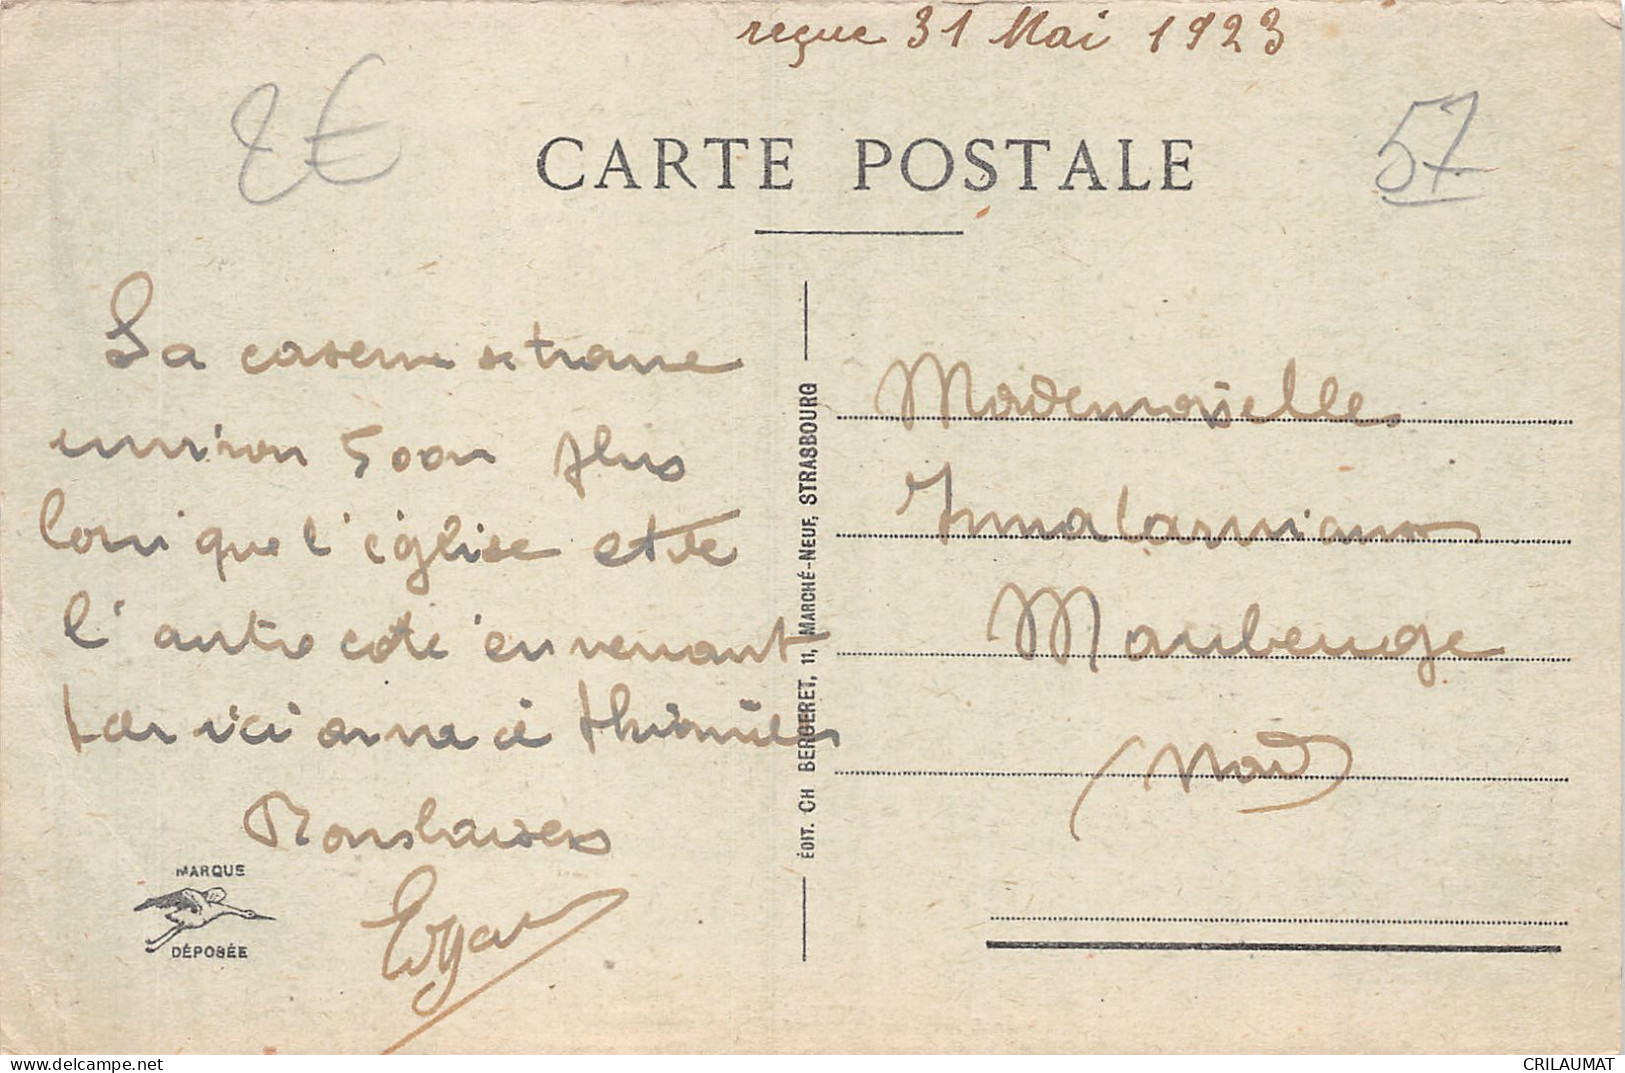 reçue 31 Mai 1923
8€
57
CARTE POSTALE
La caserne se trouve
environ 500m plus
loin que l'église et de
l'autre coté en venant
à
Bons baisers
Edgar
Mademoiselle
Irma
Maubeuge
(Nord)
ÉDIT. CH BERGERET, 11, MARCHÉ-NEUF, STRASBOURG
MARQUE
DÉPOSÉE
delcampe.net
CRILAUMAT